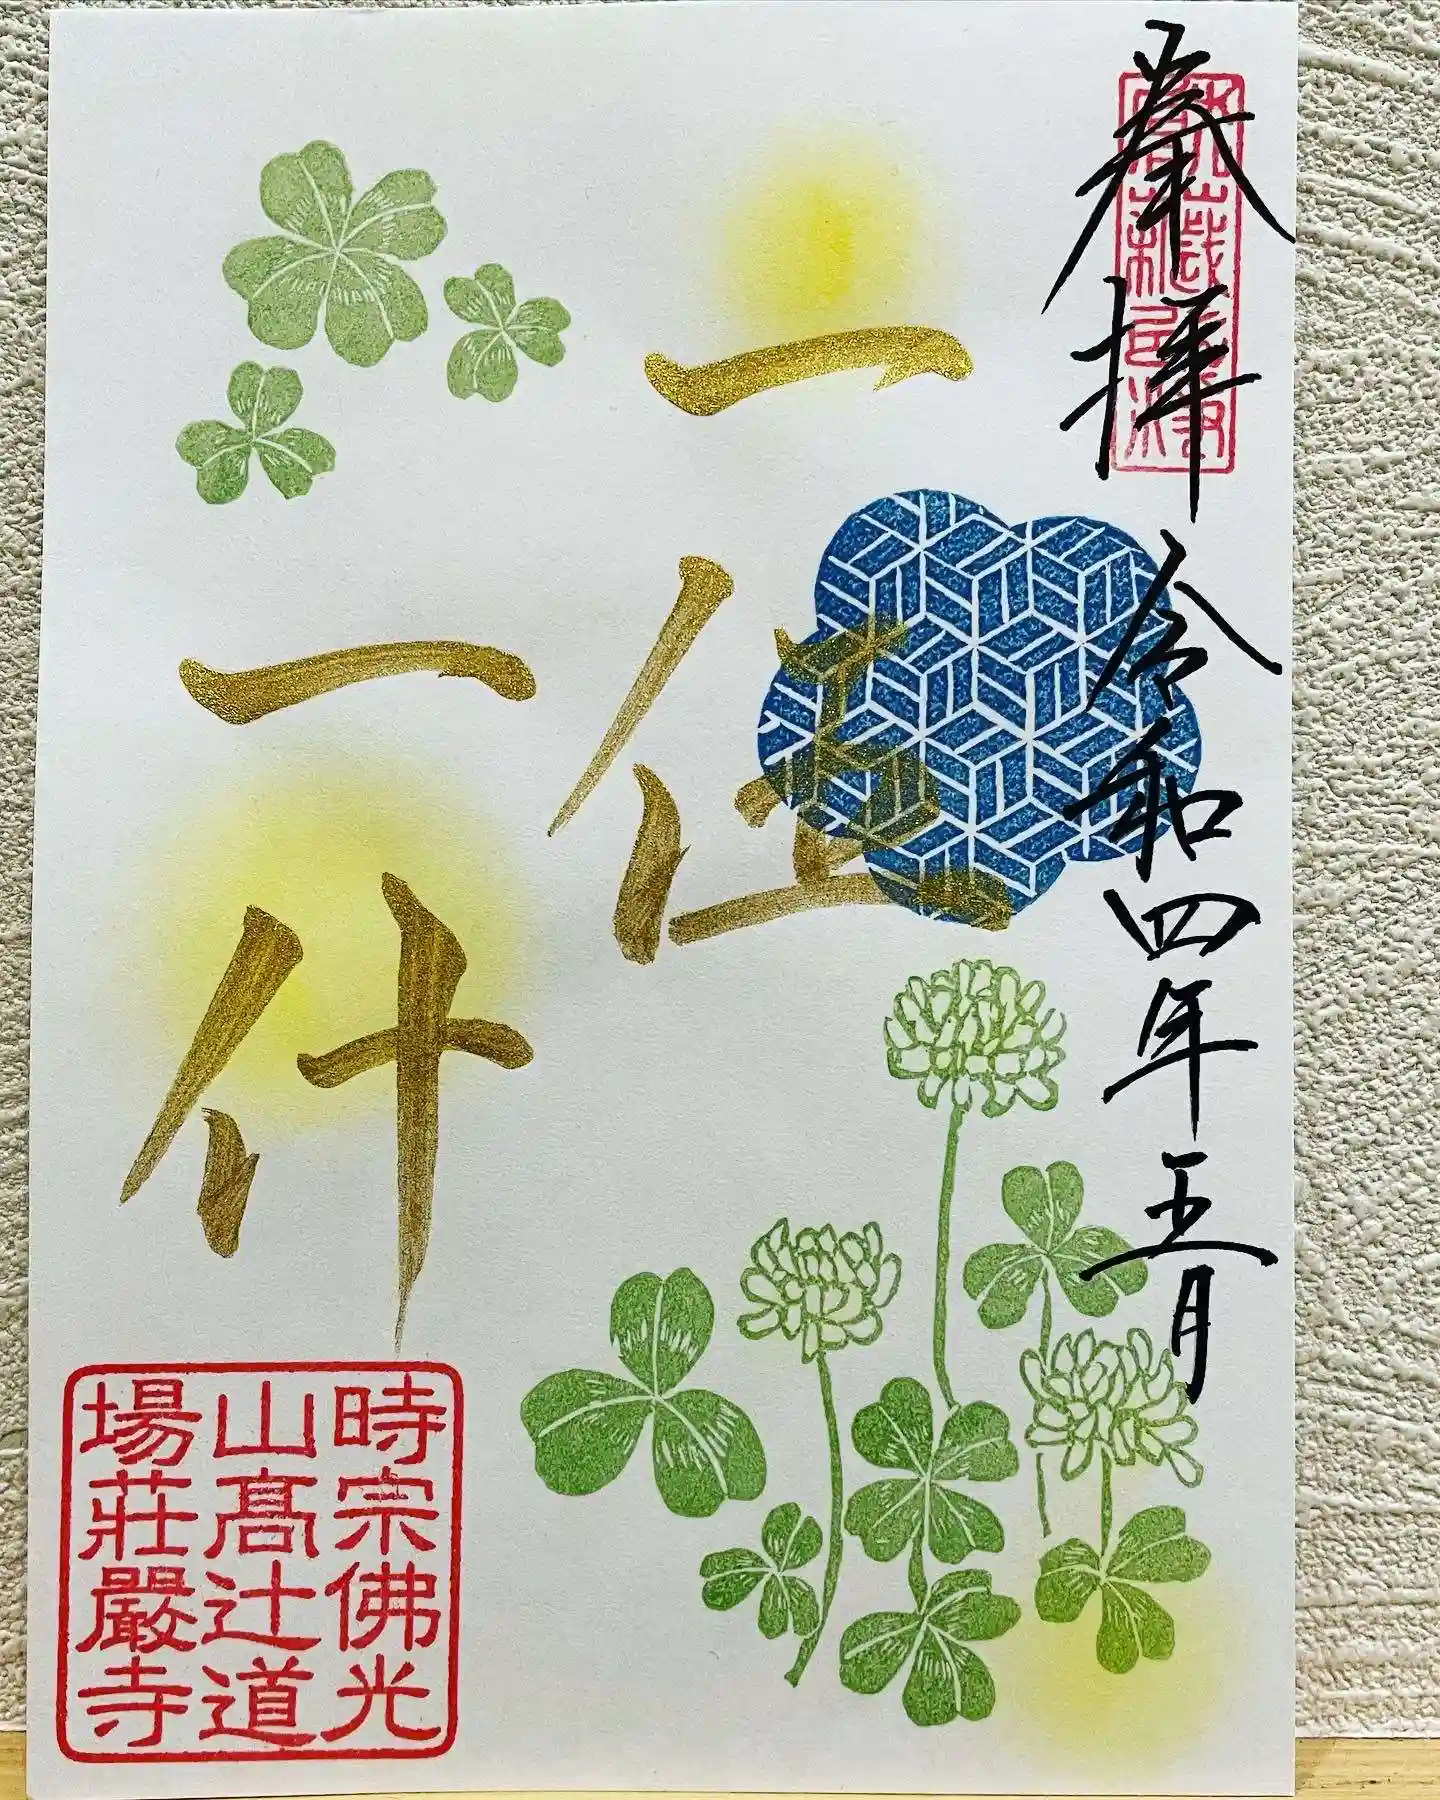 奉拝 令和四年五月
一佳
一什
時宗佛光
山髙辻道
場莊嚴寺